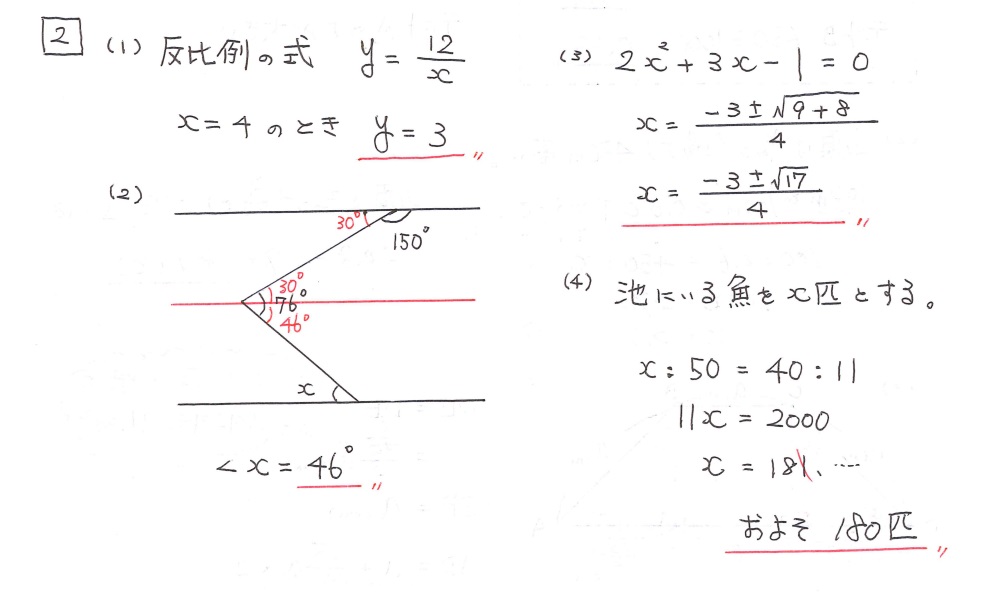 2
(1) 反比例の式 y = 12/x
x = 4 のとき y = 3 〃
(2)
30°
150°
30°
76°
46°
x
<x = 46° 〃
(3) 2x² + 3x - 1 = 0
x = (-3 ± √(9 + 8))/4
x = (-3 ± √17)/4 〃
(4) 池にいる魚を x 匹とする。
x : 50 = 40 : 11
11x = 2000
x = 181. ····
およそ 180匹 〃